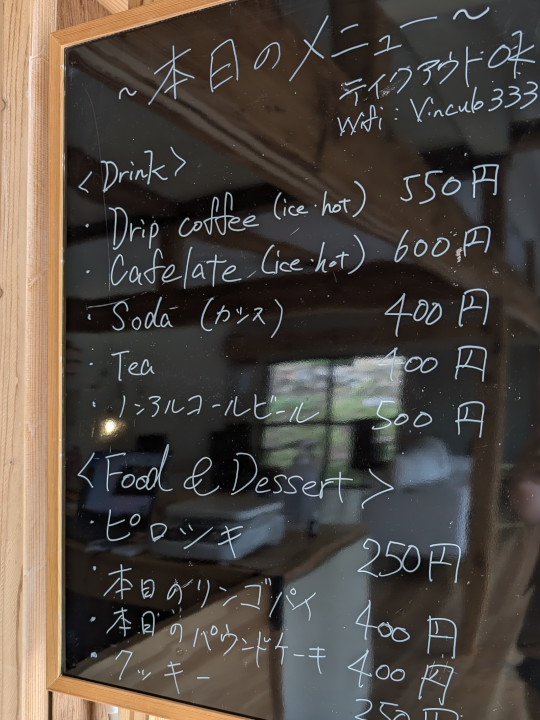 ~本日のメニュー~
テイクアウトOK
Wifi: Vinculo333
<Drink>
・Drip coffee (ice・hot) 550円
・Cafelate (ice・hot) 600円
・Soda (カシス) 400円
・Tea 400円
・ノンアルコールビール 500円
<Food & Dessert>
・ピロシキ 250円
・本日のリンゴパイ 400円
・本日のパウンドケーキ 400円
・クッキー 250円